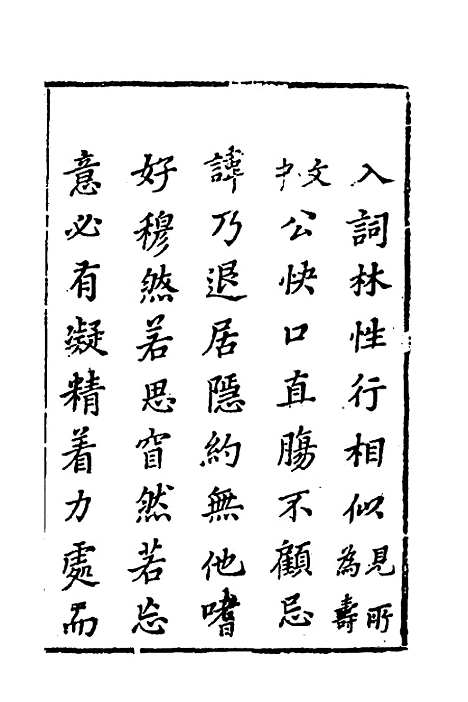 入詞林性行相似見所為壽
文中公快口直腸不顧忌
諱乃退居隱約無他嗜
好穆然若思窅然若忘
意必有凝精着力處而